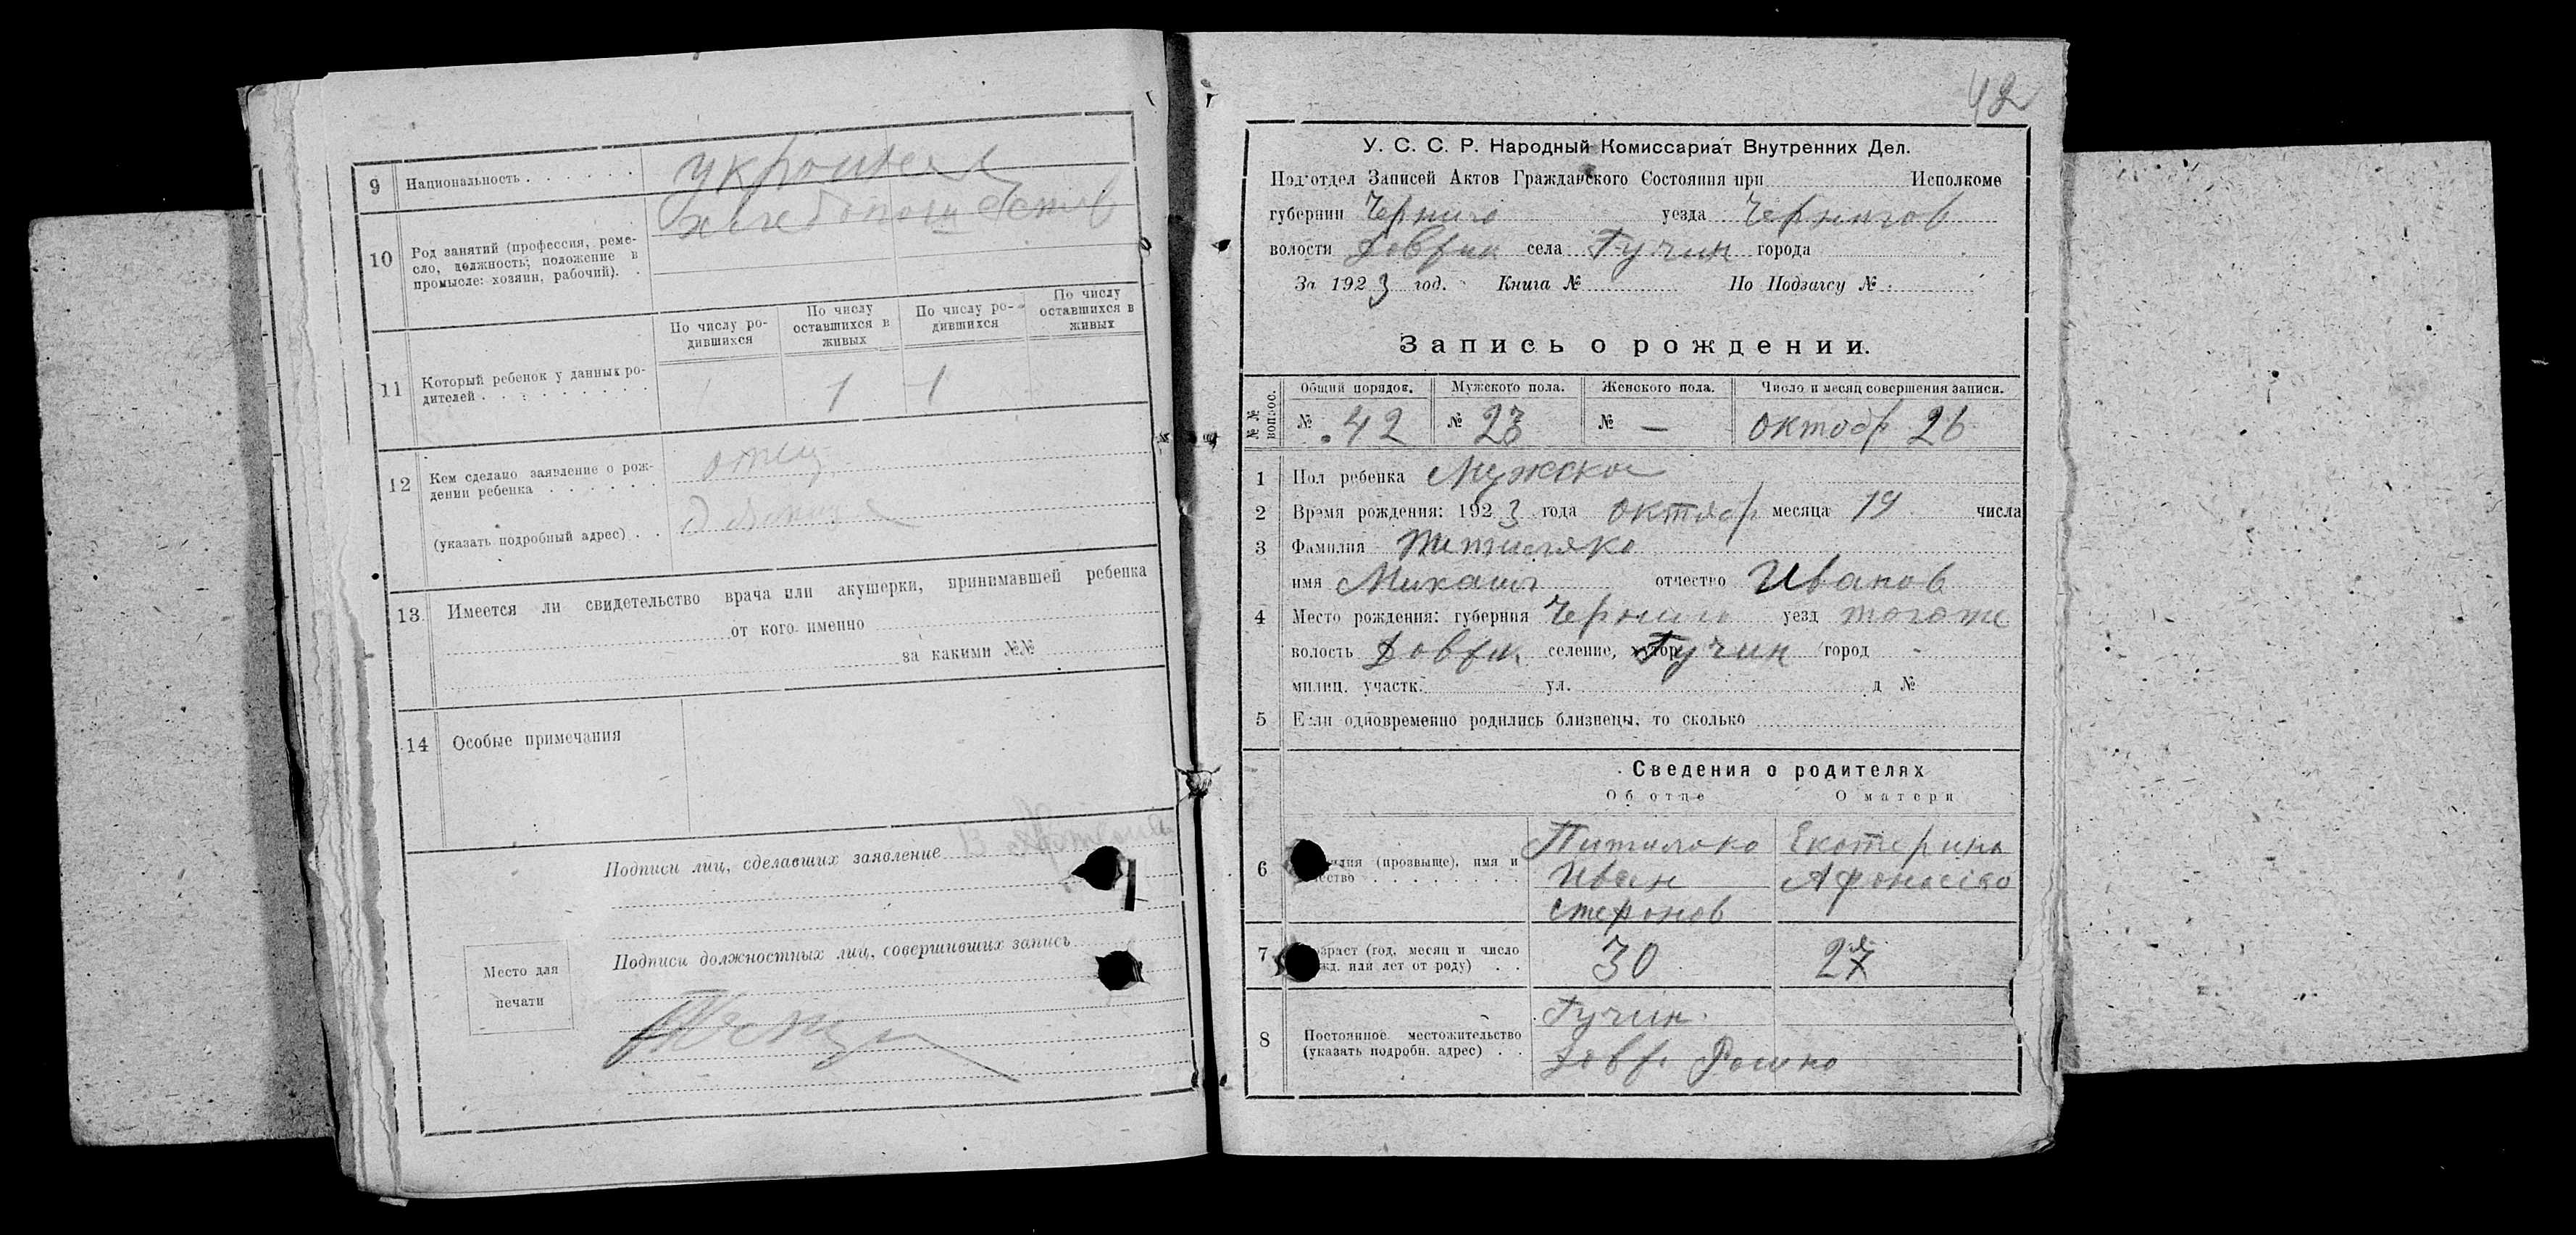 9 Национальность . . . . . . .
10 Род занятий (профессия, реме-
сло, должность; положение в
промысле: хозяин, рабочий). .
По числу ро-
дившихся
По числу
оставшихся в
живых
По числу ро-
дившихся
По числу
оставшихся в
живых
11 Который ребенок у данных ро-
дителей . . . . . . . . . 1 1
12 Кем сделано заявление о рож-
дении ребенка . . . . . . отец
(указать подробный адрес) . .
13. Имеется ли свидетельство врача или акушерки, принимавшей ребенка
от кого именно
за какими №№
14 Особые примечания
Подписи лиц, сделавших заявление
Подписи должностных лиц, совершивших запись
Место для
печати
42
У. С. С. Р. Народный Комиссариат Внутренних Дел.
Под'отдел Записей Актов Гражданского Состояния при Исполкоме
губернии Черниго уезда Чернигов
волости села Гучин города
За 1923 год. Книга № По Подзагсу №
Запись о рождении.
№ № вопрос.
Общий порядов. Мужского пола. Женского пола. Число и месяц совершения записи.
№ 42 № 23 № — 26
1 Пол ребенка Мужской
2 Время рождения: 1923 года месяца 19 числа
3 Фамилия
имя Михаил отчество Иванов
4 Место рождения: губерния Черниго уезд тогоже
волость селение, хутор Гучин город -
милиц. участк. ул. д №
5 Если одновременно родились близнецы, то сколько
Сведения о родителях
Об отце О матери
6 (прозвище), имя и
Иван
Екотерина
7 (год, месяц и число
или лет от роду) . . 30
8 Постоянное местожительство
(указать подробн. адрес) . .
Гучин